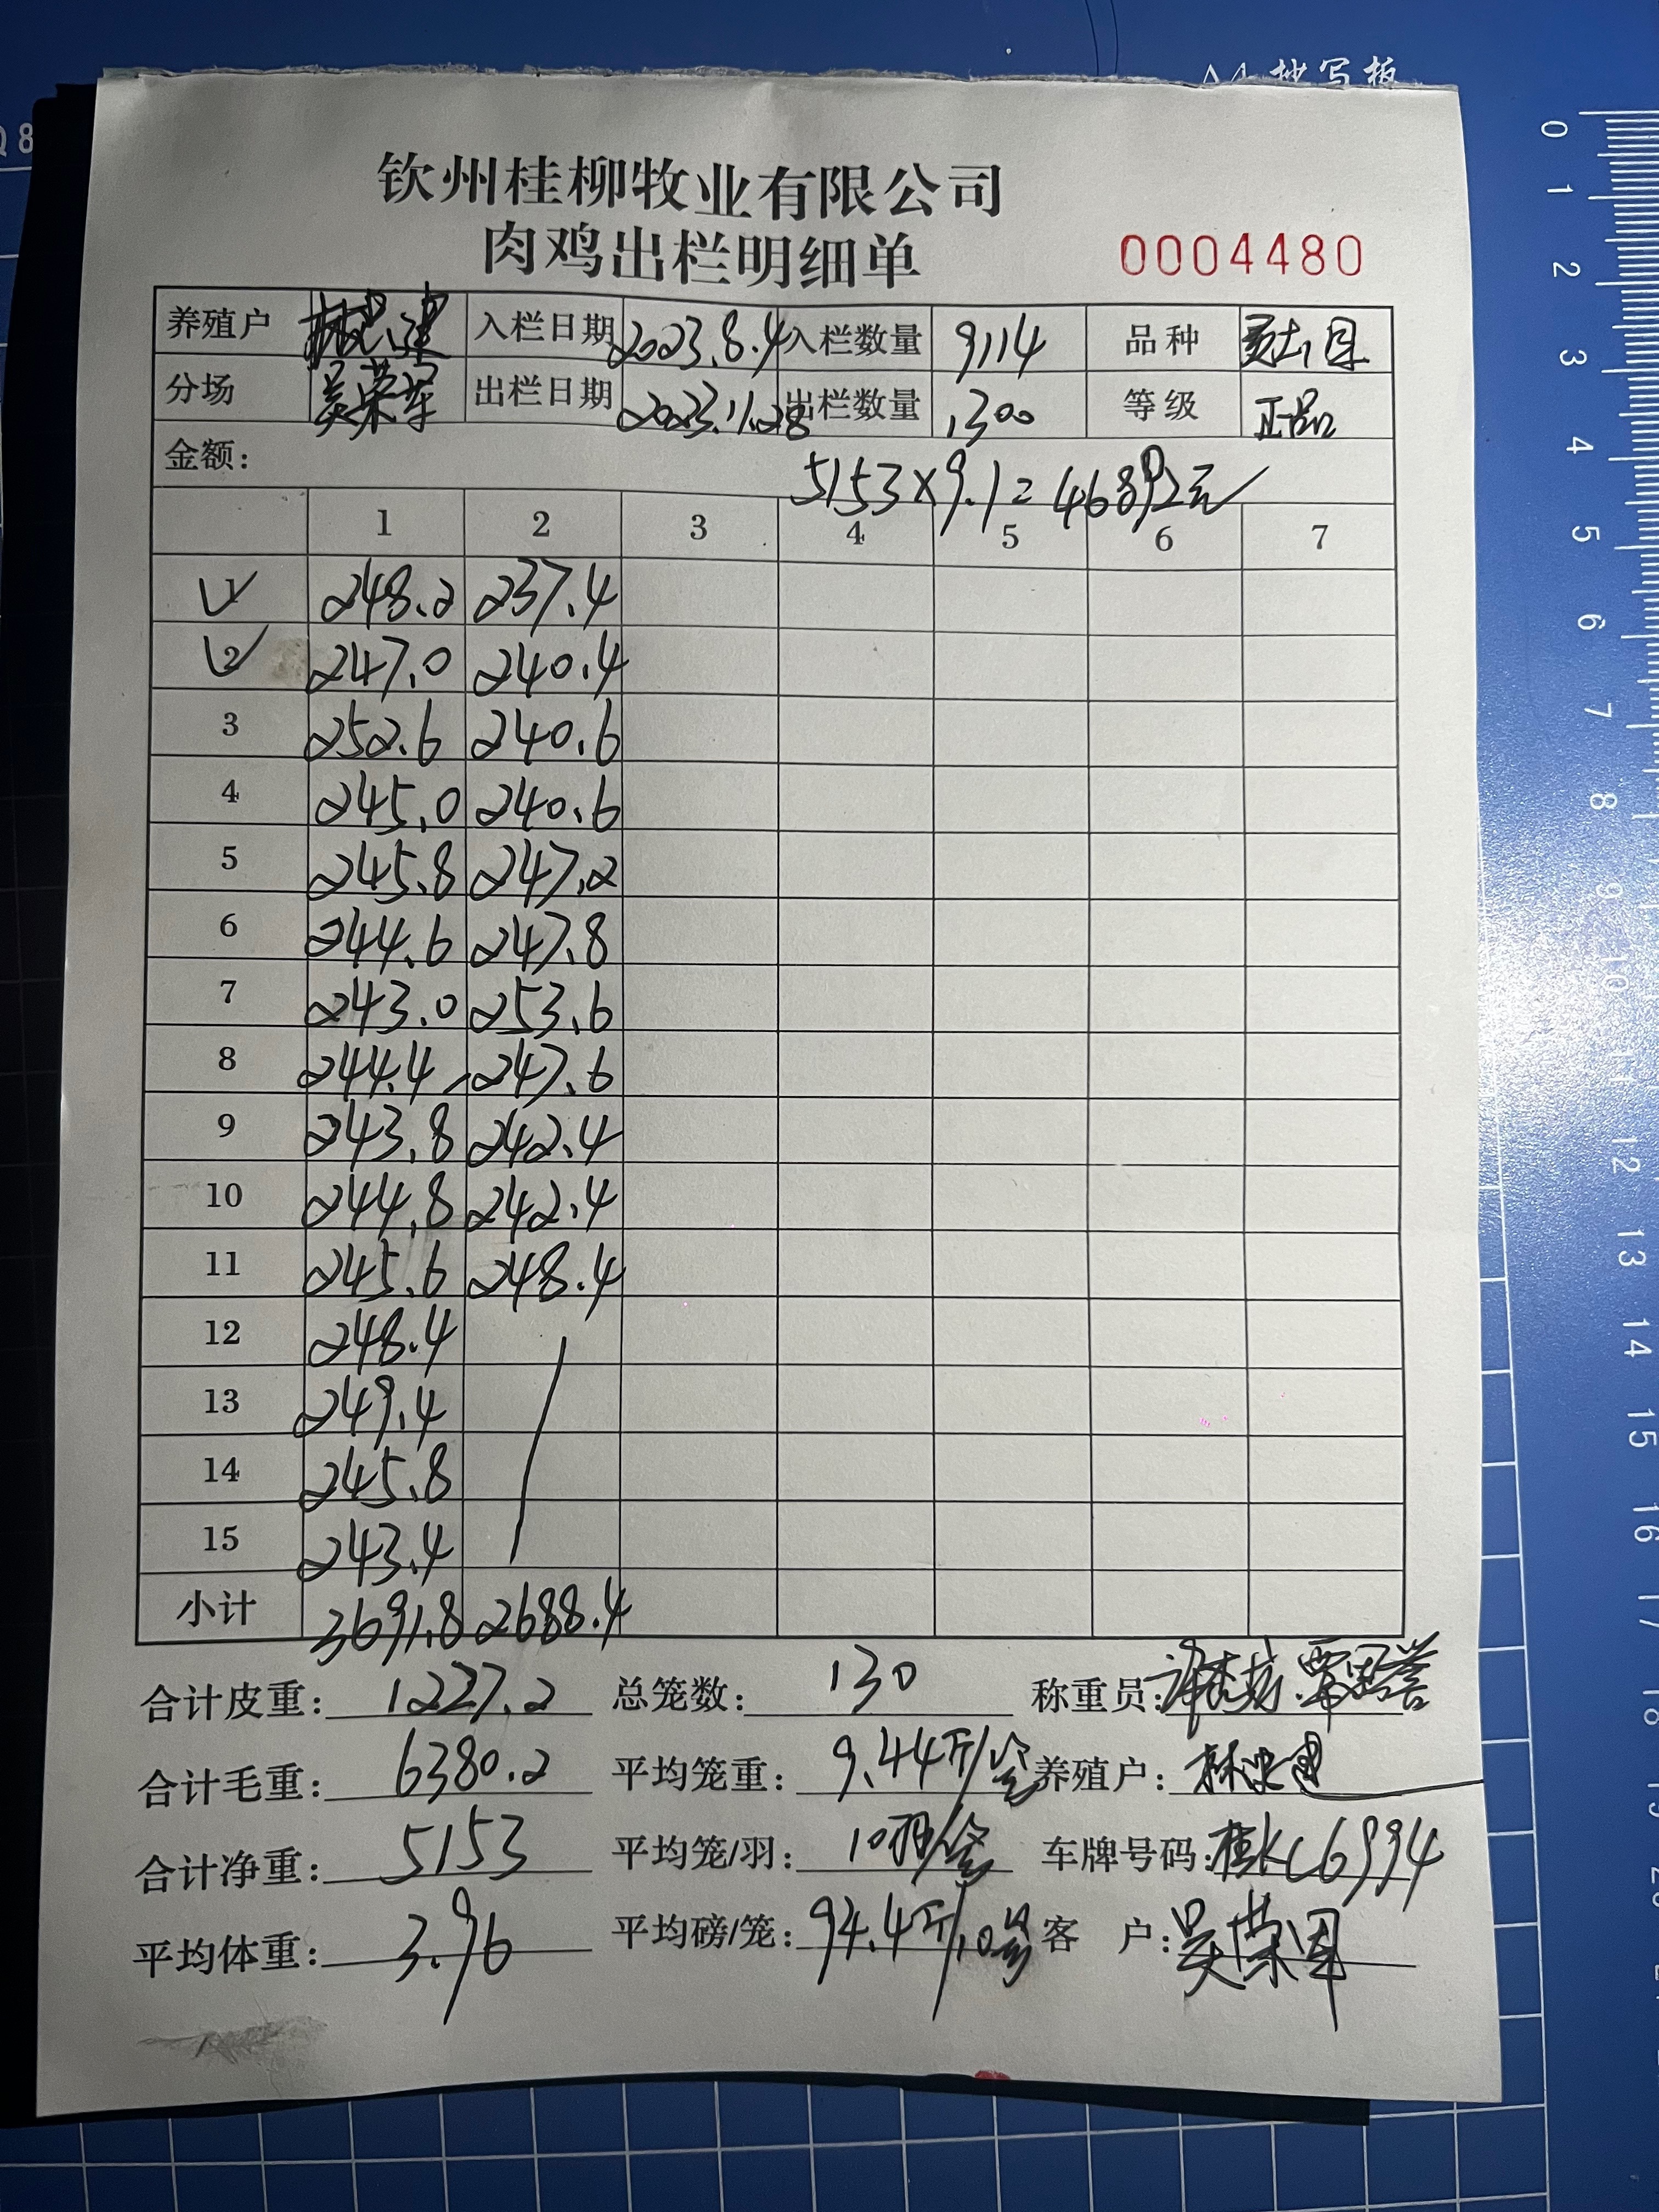 A4 抄写板
钦州桂柳牧业有限公司
肉鸡出栏明细单 0004480
养殖户 入栏日期 2023.8.4 入栏数量 9114 品种
分场 吴荣军 出栏日期 2023.11.28 出栏数量 1300 等级 正品
金额: 5153×9.1=46892元
1 2 3 4 5 6 7
1 248.2 237.4
2 247.0 240.4
3 252.6 240.6
4 245.0 240.6
5 245.8 247.2
6 244.6 247.8
7 243.0 253.6
8 244.4 247.6
9 243.8 242.4
10 244.8 242.4
11 245.6 248.4
12 248.4
13 249.4
14 245.8
15 243.4
小计 3691.8 2688.4
合计皮重: 1227.2 总笼数: 130 称重员:
合计毛重: 6380.2 平均笼重: 9.44斤/笼 养殖户:
合计净重: 5153 平均笼/羽: 10羽/笼 车牌号码: 桂KC6994
平均体重: 3.96 平均磅/笼: 94.4斤/10笼 客 户: 吴荣军
0
1
2
3
4
5
6
7
8
9
10
11
12
13
14
15
16
17
18